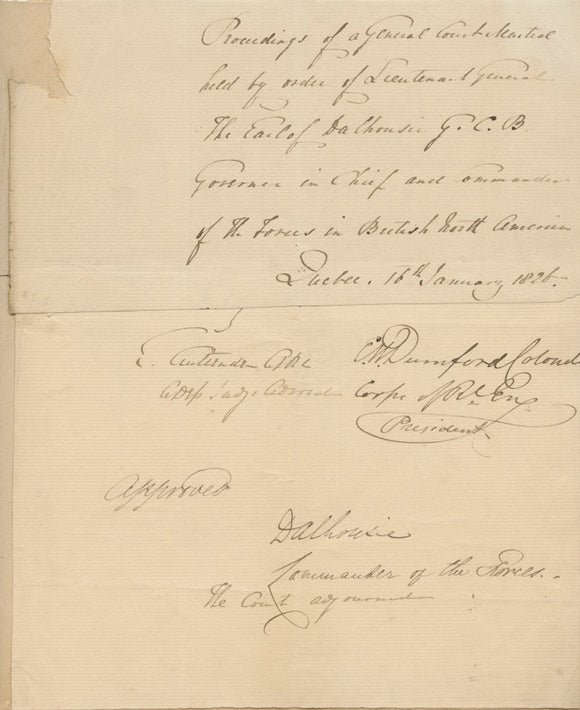 Proceedings of a General Court Martial
held by order of Lieutenant General
The Earl of Dalhousie G. C. B.
Governor in Chief and Commander
of the Forces in British North America
Quebec. 16th January 1826.
E. W. Durnford Colonel
Judge Corps of Rl. Eng.
President
Approved
Dalhousie
Commander of the Forces.
The Court adjourned